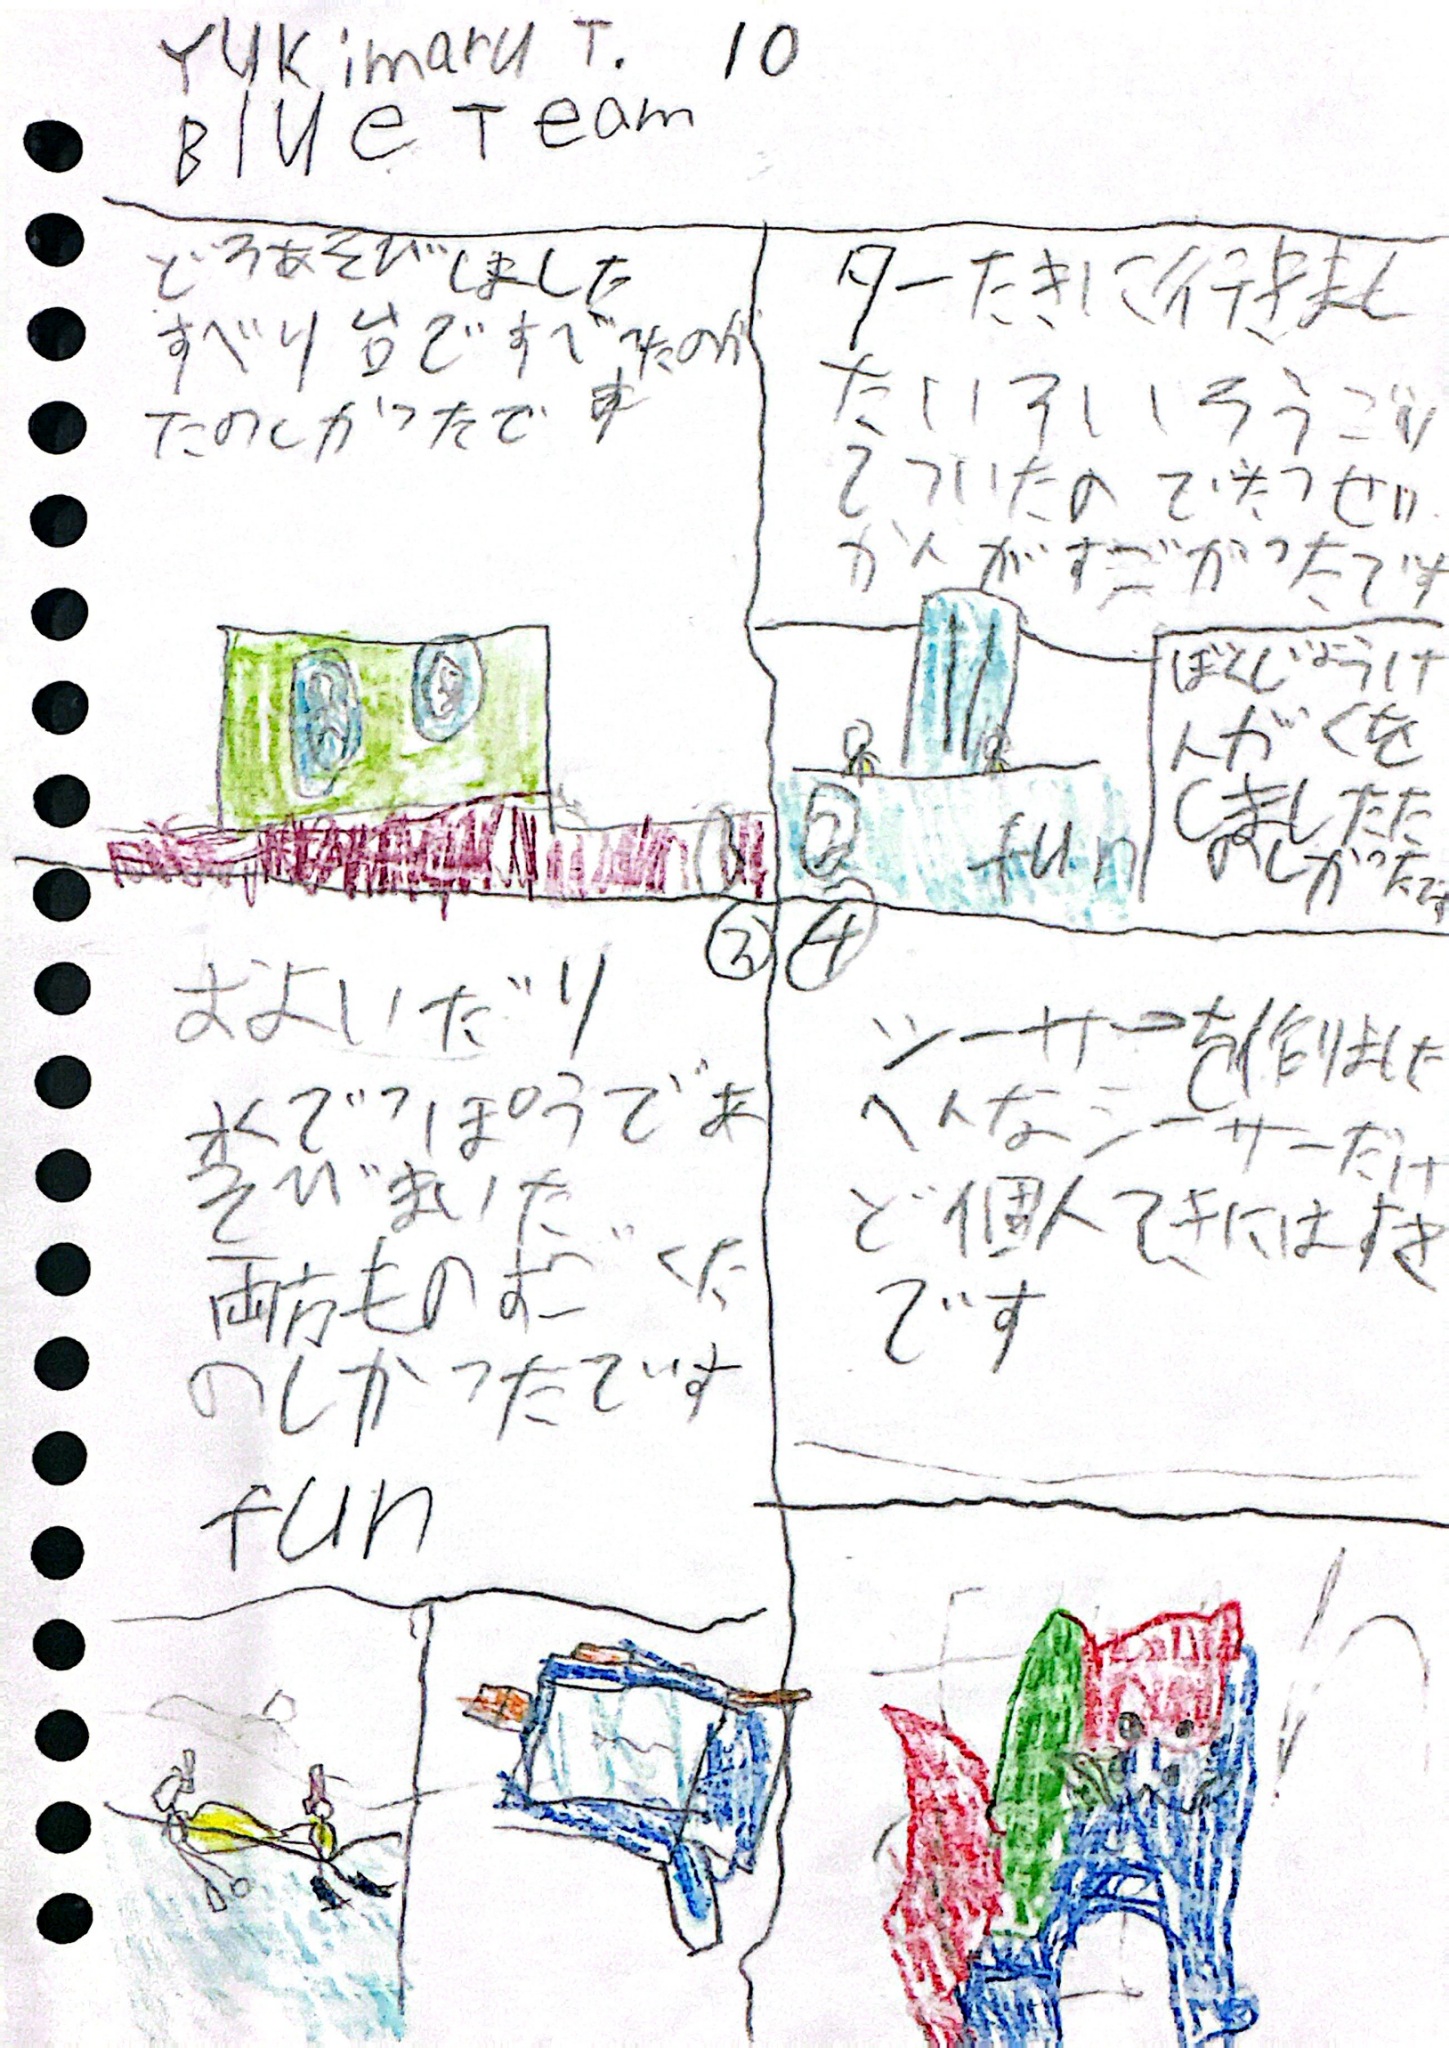 Yukimaru T. 10
Blue Team
どろあそびしました
すべり台ですべったのが
たのしかったです
①
ターたきに行きまし
たいろいろうごい
てついたので
かんがすごかったです
②
fun
ぼくじょうけ
んがくを
しましたた
しかったです
③
およいだり
水でっぽうであ
そびました
両方ものすごくた
のしかったです
fun
④
シーサーを作りました
へんなシーサーだけ
ど個人てきにはすき
です